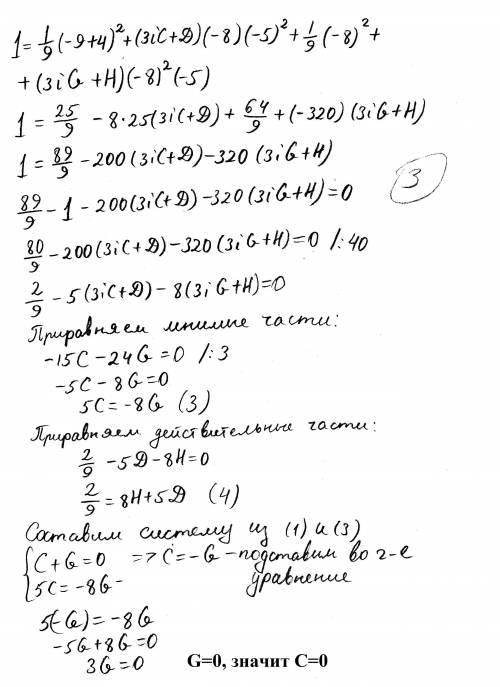 1=1/9(-9+4)²+(3iC+D)(-8)(-5)²+1/9(-8)²+
+(3iG+H)(-8)²(-5)
1=25/9-8·25(3iC+D)+64/9+(-320)(3iG+H)
1=89/9-200(3iC+D)-320(3iG+H)
3
89/9-1-200(3iC+D)-320(3iG+H)=0
80/9-200(3iC+D)-320(3iG+H)=0 /:40
2/9-5(3iC+D)-8(3iG+H)=0
Приравняем мнимые части:
-15C-24G=0 /:3
-5C-8G=0
5C=-8G (3)
Приравняем действительные части:
2/9-5D-8H=0
2/9=8H+5D (4)
Составим систему из (1) и (3)
{C+G=0 => C=-G - подставим во 2-е
{5C=-8G - уравнение
5(-G)=-8G
-5G+8G=0
3G=0 G=0, значит C=0